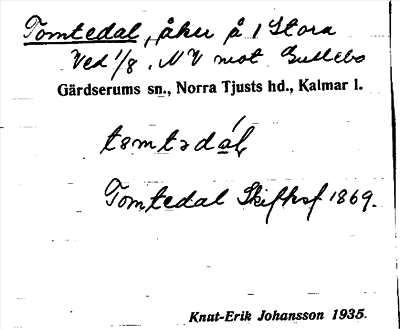 Tomtedal, åker å 1 Stora
Ved 1/8, NV mot Gullebo
Gärdserums sn., Norra Tjusts hd., Kalmar l.
Tomtedal Skifksf 1869.
Knut-Erik Johansson 1935.